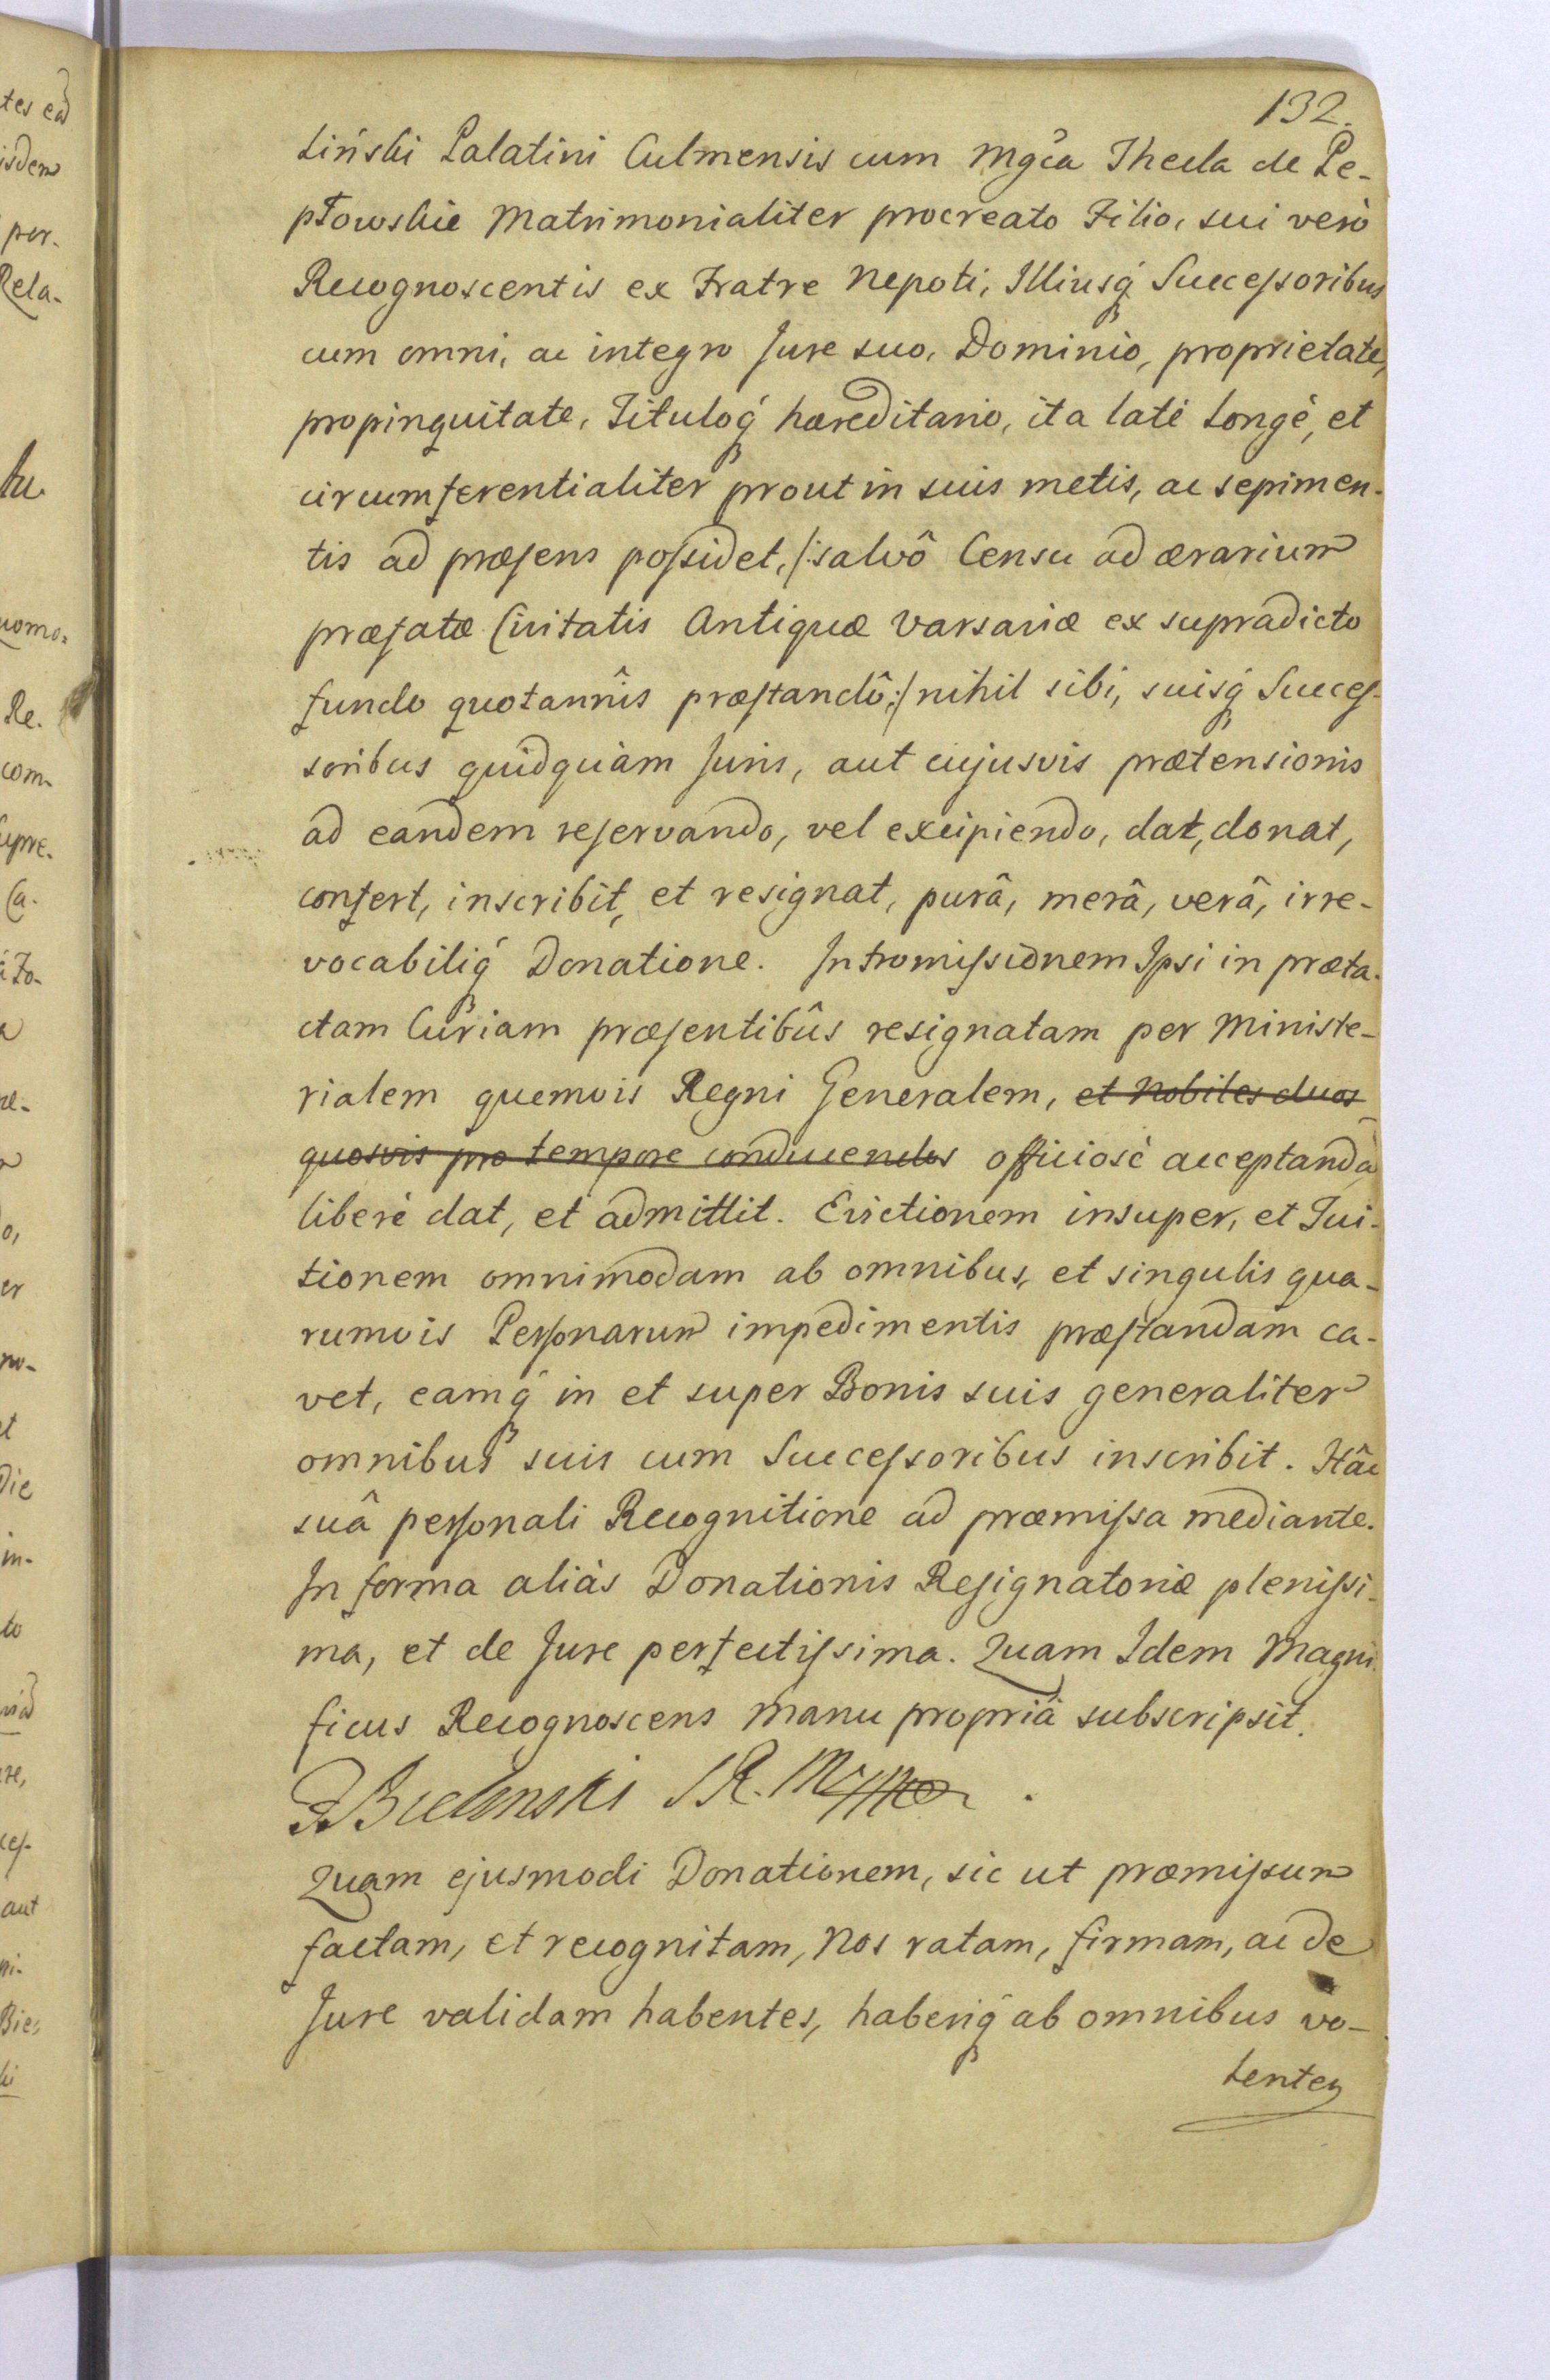 132.
liński Palatini Culmensis cum Mgca Thecla de Pe-
ptowskie Matrimonialiter procreato Filio, sui verò
Recognoscentis ex Fratre Nepoti, Illiusq́ Successoribus
cum omni, ac integro Jure suo, Dominio, proprietate,
propinquitate, Tituloq́ hæreditario, ita latè longè, et
circumferentialiter prout in suis metis, ac sepimen-
tis ad præsens possidet, /:salvô Censu ad ærarium
præfatæ Civitatis Antiquæ Varsaviæ ex supradicto
fundo quotannîs præstandô:/ nihil sibi, suisq́ Succes-
soribus quidquàm Juris, aut cujusvis prætensionis
ad eandem reservando, vel excipiendo, dat, donat,
confert, inscribit, et resignat, purâ, merâ, verâ, irre-
vocabiliq́ Donatione. Intromissionem Ipsi in præta-
ctam Curiam præsentibûs resignatam per Ministe-
rialem quemvis Regni Generalem, et Nobiles duos
quosvis pro tempore conducendos officiosè acceptandã
liberè dat, et admittit. Evictionem insuper, et Tui-
tionem omnimodam ab omnibus, et singulis qua-
rumvis Personarum impedimentis præstandam ca-
vet, eamq́ in et super Bonis suis generaliter
omnibus suis cum Successoribus inscribit. Hâc
suâ personali Recognitione ad præmissa mediante.
In forma aliàs Donationis Resignatoriæ plenissi-
ma, et de Jure perfectissima. Quam Idem Magni-
ficus Recognoscens manu propriâ subscripsit.
Bielinski
Quam ejusmodi Donationem, sic ut præmissum
factam, et recognitam, Nos ratam, firmam, ac de
Jure validam habentes, haberiq́ ab omnibus vo-
lentes